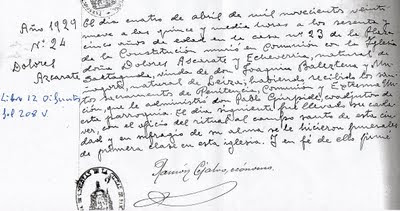 Año 1929
Nº 24
Dolores
Azcarate
Libro 12 Difuntos
fol 208 v.
El día cuatro de abril de mil novecientos veinti
nueve a las quince y media horas a los sesenta y
cinco años de edad en la casa nº 23 de la Plaza
de la Constitución murió en Comunión con la Iglesia
doña Dolores Azcarate y Echeverria, natural de
viuda de don Joaquin Baleztena y Mu
natural de Leiza; habiendo recibido los santos
sacramentos de Penitencia, Comunión y Extrema Un
ción que le administró don Pablo coadjutor de
esta parroquia. El día siguiente fué llevado su cadá
ver, con el oficio del ritual al campo santo de esta ciu
dad y en sufragio de su alma se le hicieron funerales
de primera clase en esta iglesia. Y en fé de ello firmé
Ramón ecónomo.